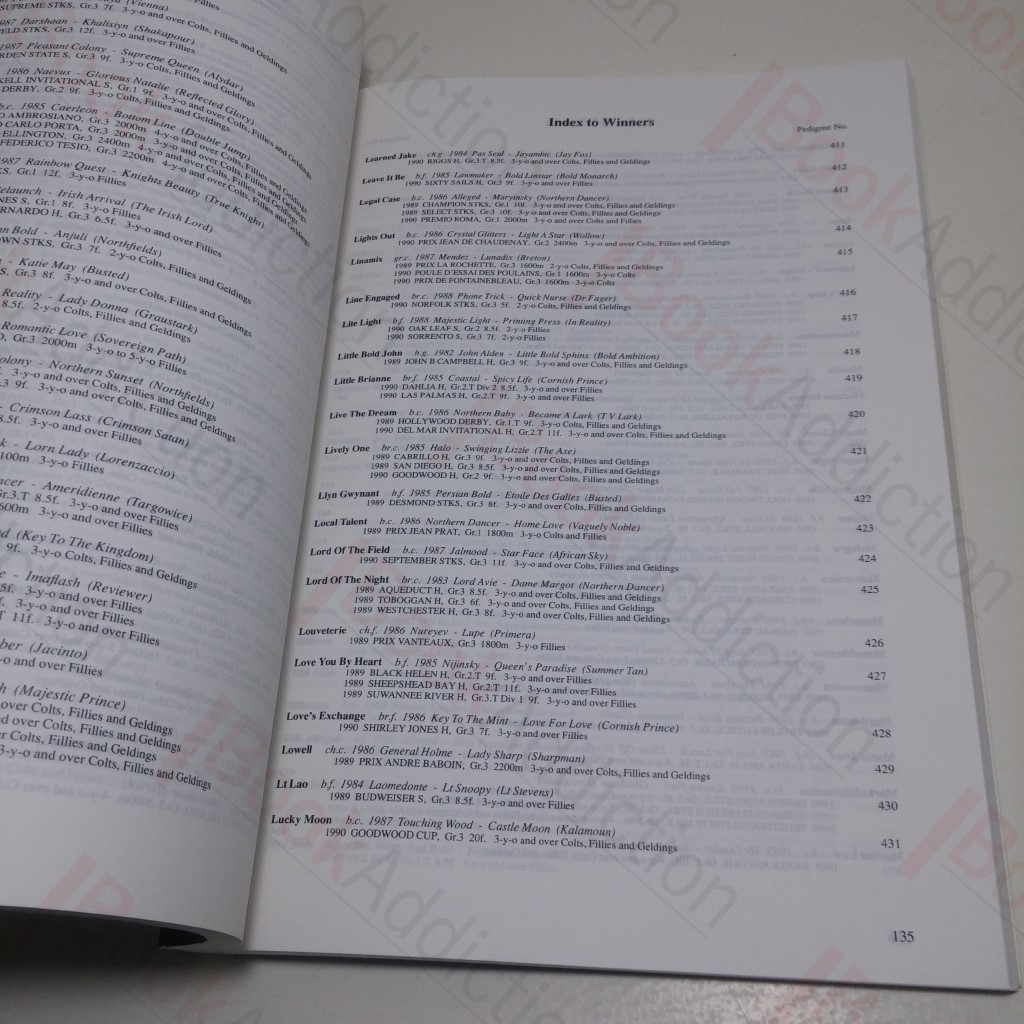 (Vienna)
SUPREME STKS, Gr.3 7f. 3-y-o and over Colts, Fillies and Geldings
987 Darshaan - Khalisiyn (Shakapour)
ELD STKS, Gr.3 12f. 3-y-o and over Fillies
987 Pleasant Colony - Supreme Queen (Alydar)
RDEN STATE S, Gr.3 9f. 3-y-o Colts, Fillies and Geldings
1986 Naevus - Glorious Natalie (Reflected Glory)
KELL INVITATIONAL S, Gr.1 9f. 3-y-o and over Colts, Fillies and Geldings
DERBY, Gr.2 9f. 3-y-o Colts, Fillies and Geldings
b.c. 1985 Caerleon - Bottom Line (Double Jump)
O AMBROSIANO, Gr.3 2000m 4-y-o and over Colts, Fillies and Geldings
O CARLO PORTA, Gr.3 2000m 3-y-o and over Colts, Fillies and Geldings
ELLINGTON, Gr.3 2400m 4-y-o and over Colts, Fillies and Geldings
FEDERICO TESIO, Gr.3 2200m 4-y-o and over Colts, Fillies and Geldings
987 Rainbow Quest - Knights Beauty (True Knight)
KS, Gr.1 12f. 3-y-o Fillies
Relaunch - Irish Arrival (The Irish Lord)
NES S, Gr.1 8f. 3-y-o Fillies
RNARDO H, Gr.3 6.5f. 3-y-o and over Fillies
an Bold - Anjuli (Northfields)
OWN STKS, Gr.3 7f. 2-y-o Colts, Fillies and Geldings
- Katie May (Busted)
S, Gr.3 8f. 3-y-o and over Colts, Fillies and Geldings
Reality - Lady Donna (Graustark)
8.5f. 2-y-o Colts, Fillies and Geldings
Romantic Love (Sovereign Path)
O, Gr.3 2000m 3-y-o to 5-y-o Fillies
Colony - Northern Sunset (Northfields)
f. 3-y-o and over Colts, Fillies and Geldings
.3 9f. 3-y-o and over Colts, Fillies and Geldings
- Crimson Lass (Crimson Satan)
8.5f. 3-y-o and over Fillies
k - Lorn Lady (Lorenzaccio)
100m 3-y-o Fillies
ncer - Ameridienne (Targowice)
Gr.3.T 8.5f. 3-y-o and over Fillies
600m 3-y-o and over Fillies
d (Key To The Kingdom)
9f. 3-y-o Colts, Fillies and Geldings
e - Imaflash (Reviewer)
5f. 3-y-o and over Fillies
f. 3-y-o and over Fillies
T 11f. 3-y-o and over Fillies
ber (Jacinto)
-o and over Fillies
h (Majestic Prince)
over Colts, Fillies and Geldings
d over Colts, Fillies and Geldings
r Colts, Fillies and Geldings
3-y-o and over Colts, Fillies and Geldings
Index to Winners
Pedigree No.
Learned Jake ch.g. 1984 Pas Seul - Jayambic (Jay Fox) 411
1990 RIGGS H, Gr.3.T 8.5f. 3-y-o and over Colts, Fillies and Geldings
Leave It Be b.f. 1985 Lawmaker - Bold Linstar (Bold Monarch) 412
1990 SIXTY SAILS H, Gr.3 9f. 3-y-o and over Fillies
Legal Case b.c. 1986 Alleged - Maryinsky (Northern Dancer) 413
1989 CHAMPION STKS, Gr.1 10f. 3-y-o and over Colts, Fillies and Geldings
1989 SELECT STKS, Gr.3 10f. 3-y-o and over Colts, Fillies and Geldings
1990 PREMIO ROMA, Gr.1 2000m 3-y-o and over Colts and Fillies
Lights Out b.c. 1986 Crystal Glitters - Light A Star (Wollow) 414
1990 PRIX JEAN DE CHAUDENAY, Gr.2 2400m 3-y-o and over Colts, Fillies and Geldings
Linamix gr.c. 1987 Mendez - Lunadix (Breton) 415
1989 PRIX LA ROCHETTE, Gr.3 1600m 2-y-o Colts, Fillies and Geldings
1990 POULE D'ESSAI DES POULAINS, Gr.1 1600m 3-y-o Colts
1990 PRIX DE FONTAINEBLEAU, Gr.3 1600m 3-y-o Colts
Line Engaged br.c. 1988 Phone Trick - Quick Nurse (Dr Fager) 416
1990 NORFOLK STKS, Gr.3 5f. 2-y-o Colts, Fillies and Geldings
Lite Light b.f. 1988 Majestic Light - Printing Press (In Reality) 417
1990 OAK LEAF S, Gr.2 8.5f. 2-y-o Fillies
1990 SORRENTO S, Gr.3 7f. 2-y-o Fillies
Little Bold John b.g. 1982 John Alden - Little Bold Sphinx (Bold Ambition) 418
1989 JOHN B CAMPBELL H, Gr.3 9f. 3-y-o and over Colts, Fillies and Geldings
Little Brianne br.f. 1985 Coastal - Spicy Life (Cornish Prince) 419
1990 DAHLIA H, Gr.2.T Div 2 8.5f. 3-y-o and over Fillies
1990 LAS PALMAS H, Gr.2.T 9f. 3-y-o and over Fillies
Live The Dream b.c. 1986 Northern Baby - Became A Lark (T V Lark) 420
1989 HOLLYWOOD DERBY, Gr.1.T 9f. 3-y-o Colts, Fillies and Geldings
1990 DEL MAR INVITATIONAL H, Gr.2.T 11f. 3-y-o and over Colts, Fillies and Geldings
Lively One br.c. 1985 Halo - Swinging Lizzie (The Axe) 421
1989 CABRILLO H, Gr.3 9f. 3-y-o and over Colts, Fillies and Geldings
1989 SAN DIEGO H, Gr.3 8.5f. 3-y-o and over Colts, Fillies and Geldings
1990 GOODWOOD H, Gr.2 9f. 3-y-o and over Colts, Fillies and Geldings
Llyn Gwynant b.f. 1985 Persian Bold - Etoile Des Galles (Busted) 422
1989 DESMOND STKS, Gr.3 8f. 3-y-o and over Colts, Fillies and Geldings
Local Talent b.c. 1986 Northern Dancer - Home Love (Vaguely Noble) 423
1989 PRIX JEAN PRAT, Gr.1 1800m 3-y-o Colts and Fillies
Lord Of The Field b.c. 1987 Jalmood - Star Face (African Sky) 424
1990 SEPTEMBER STKS, Gr.3 11f. 3-y-o and over Colts, Fillies and Geldings
Lord Of The Night br.c. 1983 Lord Avie - Dame Margot (Northern Dancer) 425
1989 AQUEDUCT H, Gr.3 8.5f. 3-y-o and over Colts, Fillies and Geldings
1989 TOBOGGAN H, Gr.3 6f. 3-y-o and over Colts, Fillies and Geldings
1989 WESTCHESTER H, Gr.3 8f. 3-y-o and over Colts, Fillies and Geldings
Louveterie ch.f. 1986 Nureyev - Lupe (Primera) 426
1989 PRIX VANTEAUX, Gr.3 1800m 3-y-o Fillies
Love You By Heart b.f. 1985 Nijinsky - Queen's Paradise (Summer Tan) 427
1989 BLACK HELEN H, Gr.2.T 9f. 3-y-o and over Fillies
1989 SHEEPSHEAD BAY H, Gr.2.T 11f. 3-y-o and over Fillies
1989 SUWANNEE RIVER H, Gr.3.T Div 1 9f. 3-y-o and over Fillies
Love's Exchange br.f. 1986 Key To The Mint - Love For Love (Cornish Prince) 428
1990 SHIRLEY JONES H, Gr.3 7f. 3-y-o and over Fillies
Lowell ch.c. 1986 General Holme - Lady Sharp (Sharpman) 429
1989 PRIX ANDRE BABOIN, Gr.3 2200m 3-y-o and over Colts, Fillies and Geldings
Lt Lao b.f. 1984 Laomedonte - Lt Snoopy (Lt Stevens) 430
1989 BUDWEISER S, Gr.3 8.5f. 3-y-o and over Fillies
Lucky Moon b.c. 1987 Touching Wood - Castle Moon (Kalamoun) 431
1990 GOODWOOD CUP, Gr.3 20f. 3-y-o and over Colts, Fillies and Geldings
135
BookAddiction